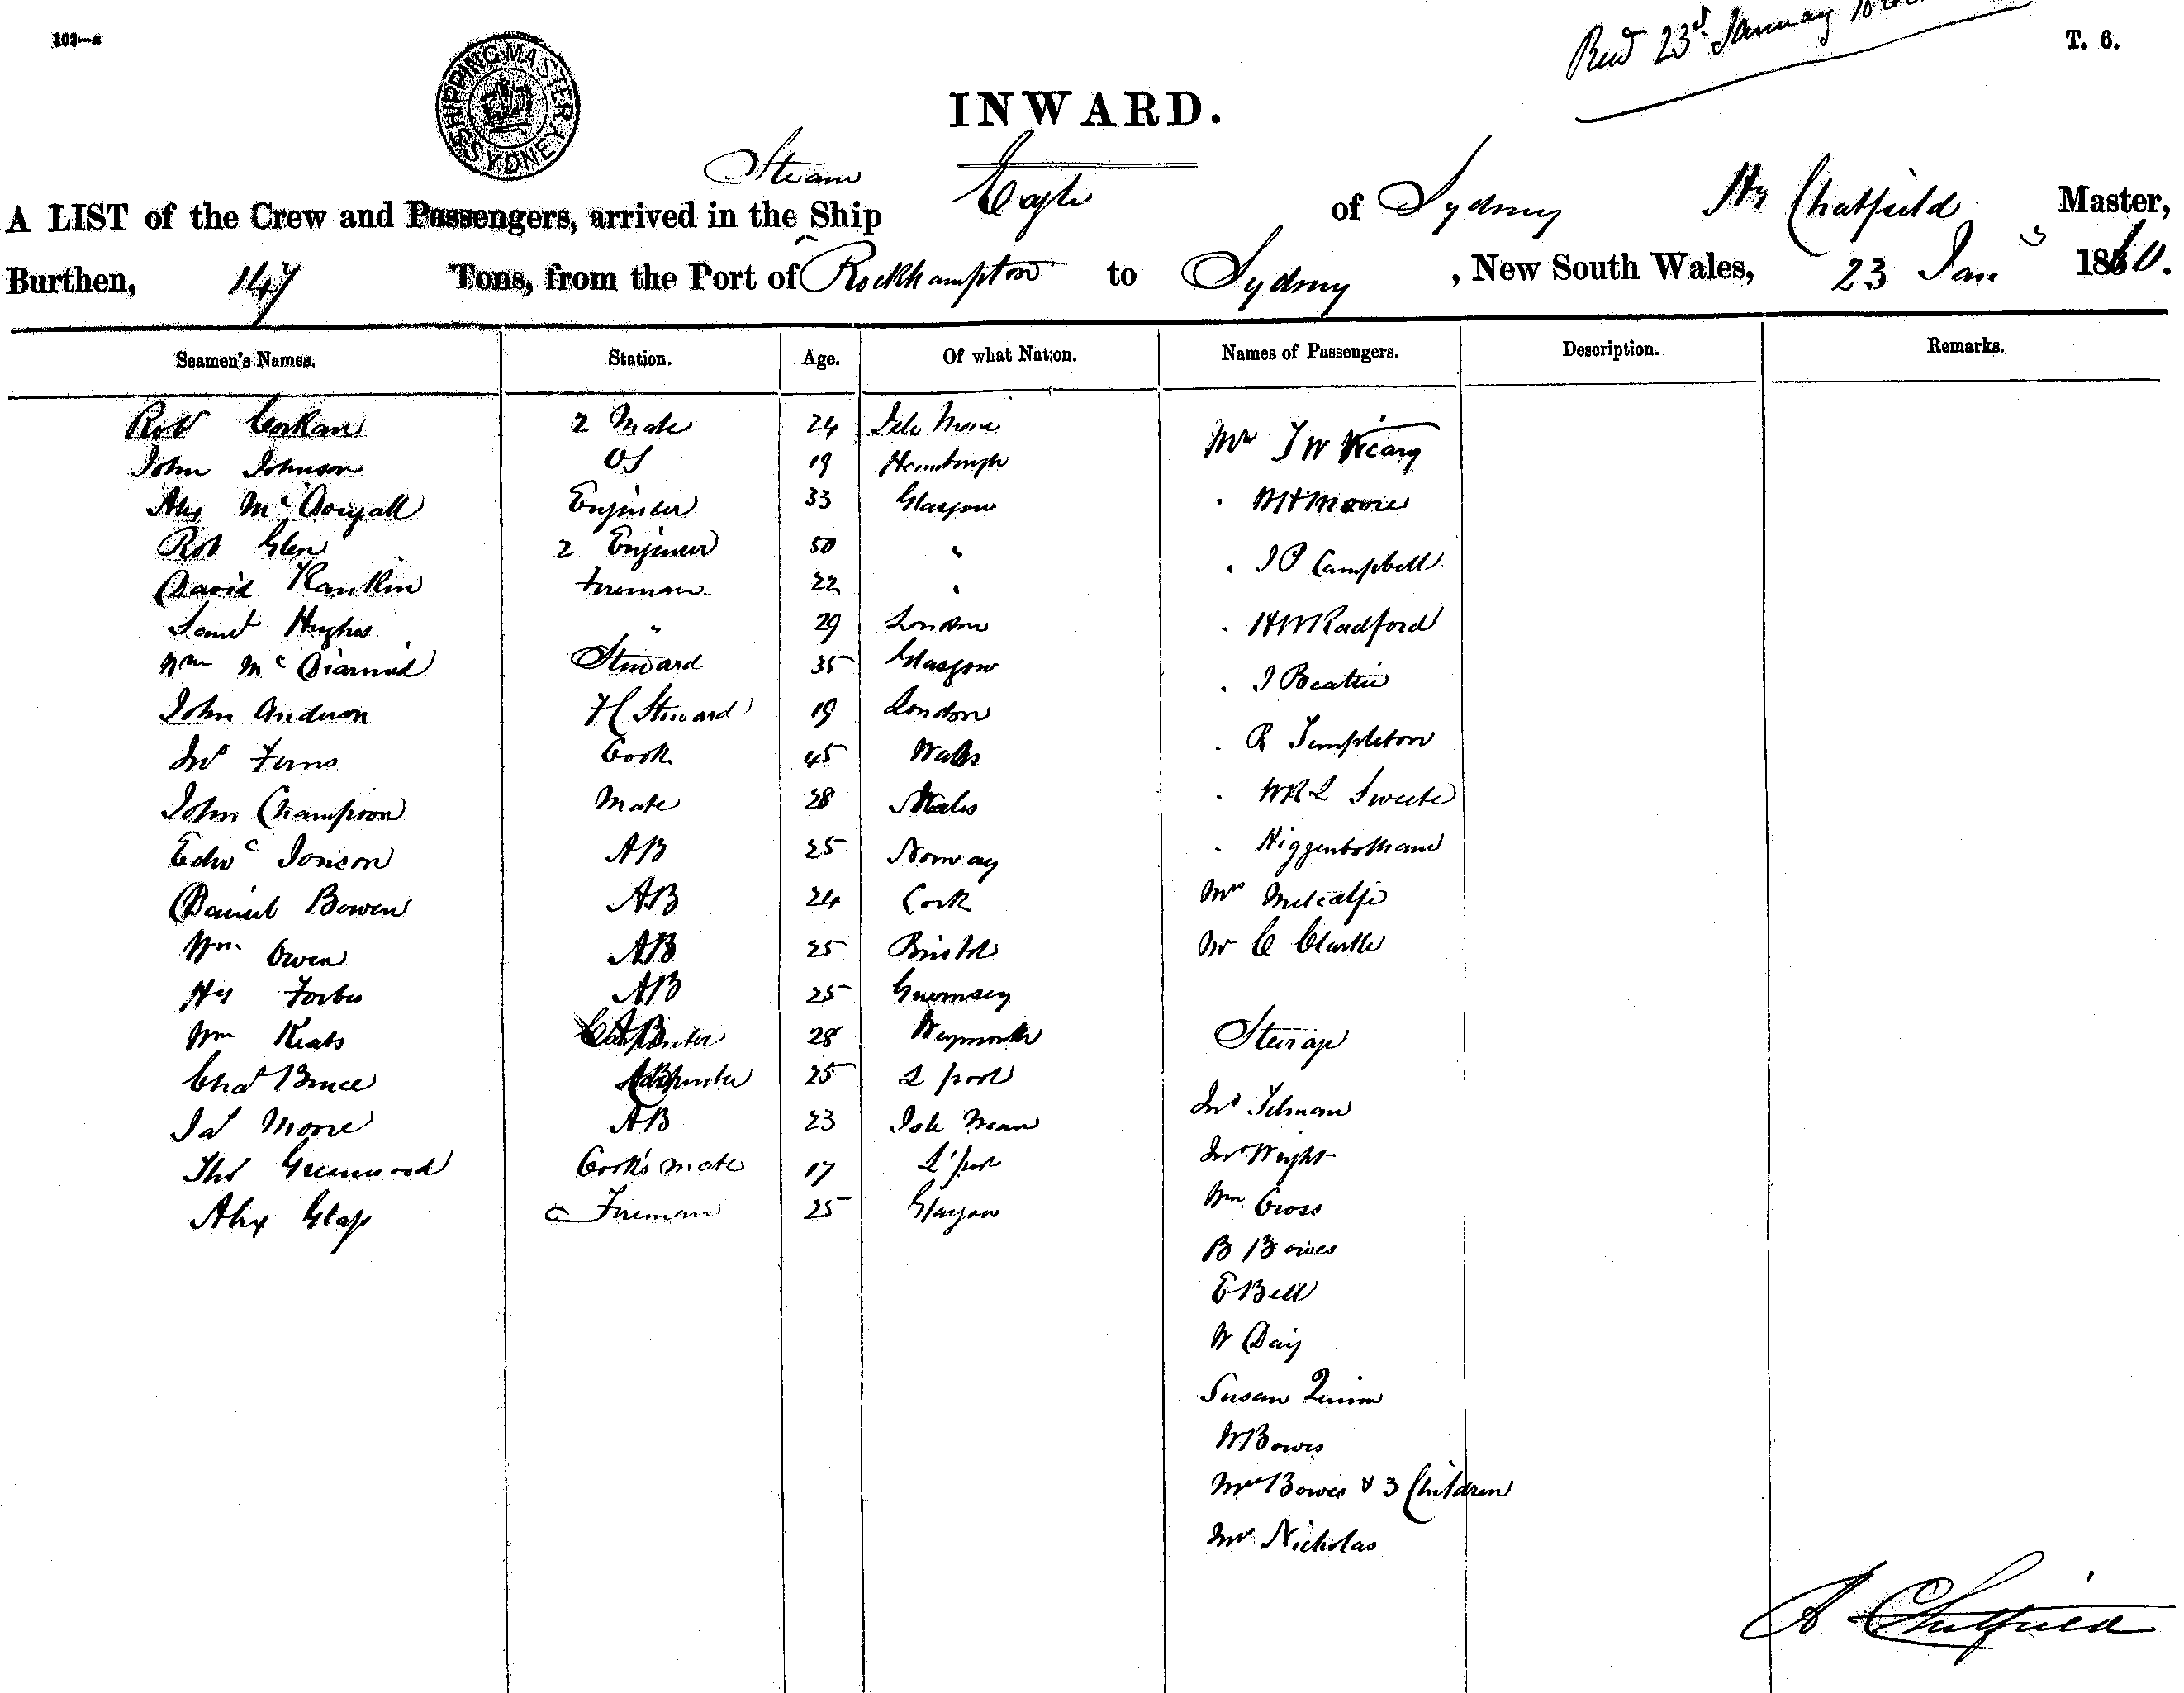 Recd 23rd January
T. 6.
SHIPPING MASTER SYDNEY
INWARD.
Steam
A LIST of the Crew and Passengers, arrived in the Ship Eagle of Sydney Hy Chatfield Master,
Burthen, 147 Tons, from the Port of Rockhampton to Sydney, New South Wales, 23 Jany 1860.
Seamen's Names. Station. Age. Of what Nation. Names of Passengers. Description. Remarks.
Robt Corkan 2 Mate 24 Isle Mann
John Johnson OS 19 Hamburgh
Alex McDougall Engineer 33 Glasgow
Rob Glen 2 Engineer 50 "
David Rankin Fireman 22 "
Saml Hughes " 29 London
Wm McDiarmid Steward 35 Glasgow
John Anderson Steward 19 London
Jno Ferns Cook 45 Wales
John Champion Mate 28 Wales
Edwd Jonson AB 25 Norway
Daniel Bowen AB 24 Cork
Wm Owen AB 25 Bristol
Hy Forbes AB 25 Guernsey
Wm Keats AB 28 Weymouth
Chas Bruce Carpenter 25 L'pool
Jas Moore AB 23 Isle Mann
Thos Greenwood Cook's mate 17 L'pool
Alex Glass Fireman 25 Glasgow
Mr J W Vicary
" W H Moore
" J P Campbell
" H W Radford
" J Beattie
" R Templeton
" W R L Sweete
" Higgenbotham
Mrs Metcalfe
Mr C Clarke
Steirage
Jno Tilman
Jno Wright
Wm Cross
B Bowes
E Bell
W Day
Susan Quinn
W Bowes
Mrs Bowes & 3 Children
Mr Nicholas
H Chatfield